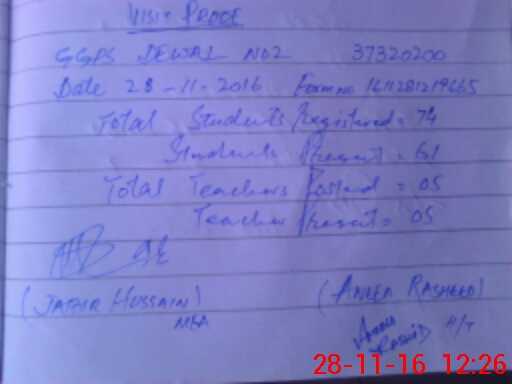 VISIT PROOF
GGPS DEWAL NO2 37320200
Date 28-11-2016 Form no 1611281219665
Total Students Registered = 74
Students Present = 61
Total Teachers Posted = 05
Teacher Present = 05
(JAFFAR HUSSAIN) (ANEELA RASHEED)
MEA RASHID H/T
28-11-16 12:26